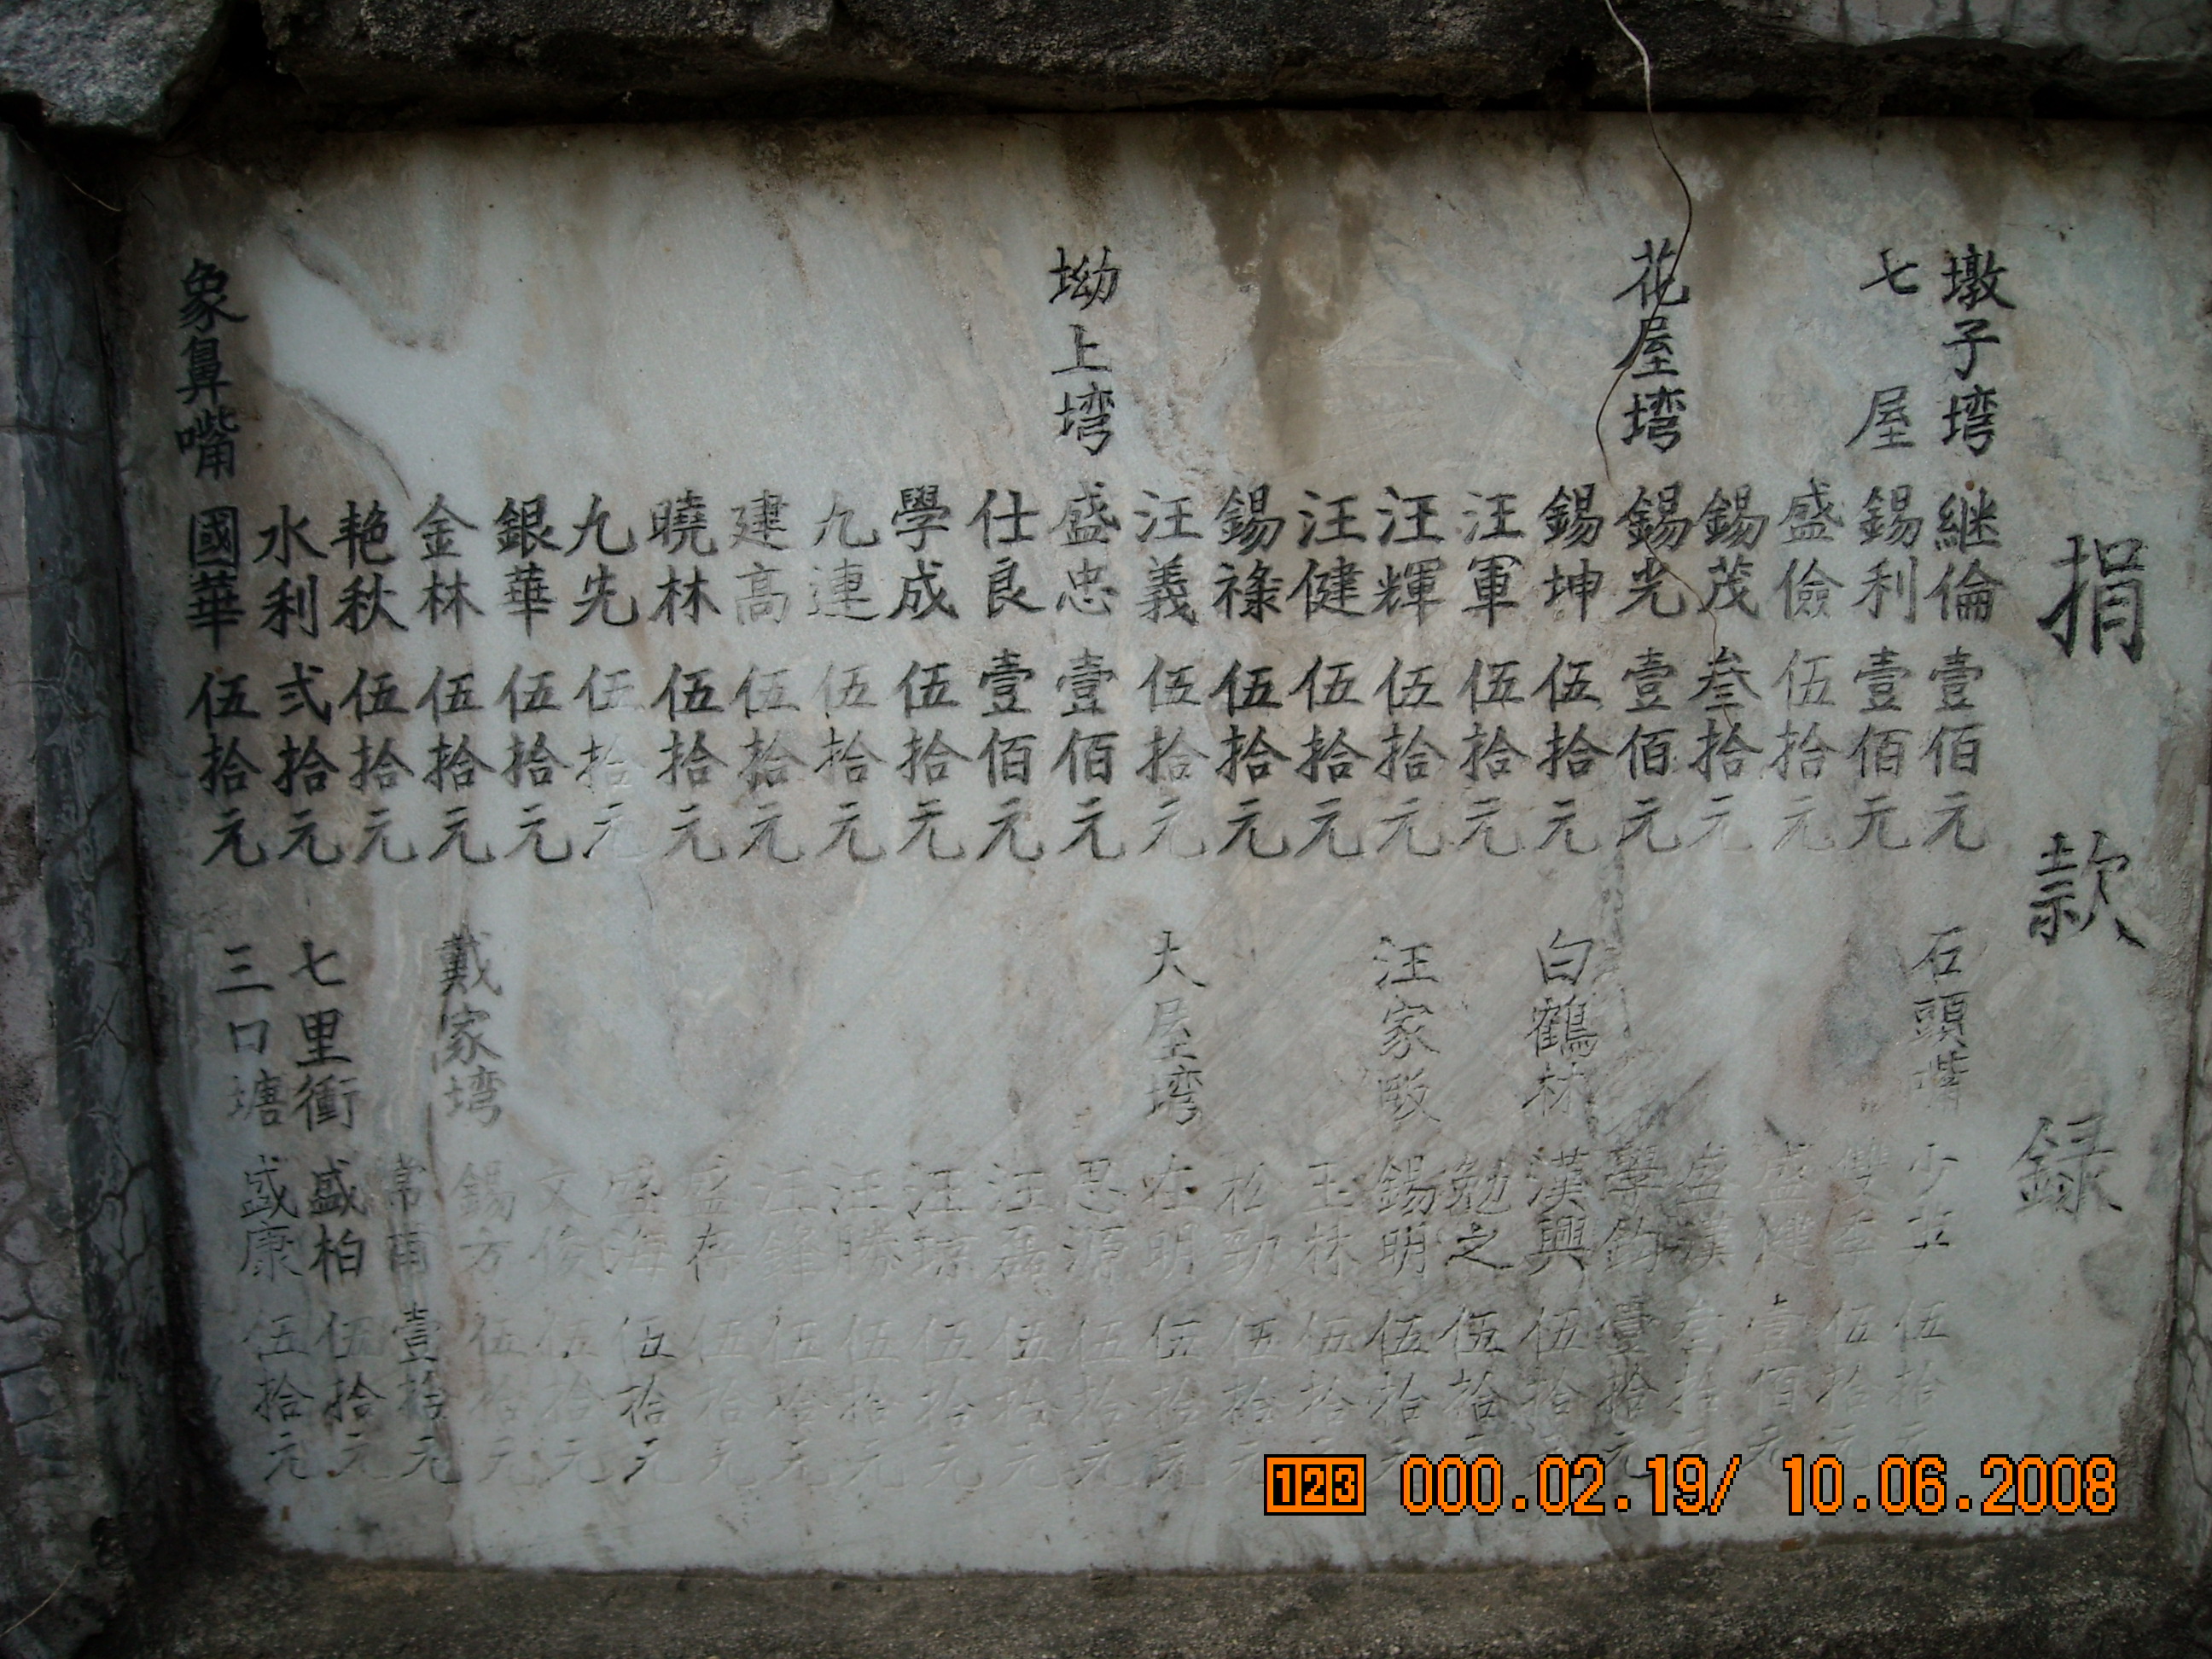 捐款録
墩子塆 継倫 壹佰元
七屋 錫利 壹佰元
盛儉 伍拾元
錫茂 叁拾元
花屋塆 錫光 壹佰元
錫坤 伍拾元
汪軍 伍拾元
汪輝 伍拾元
汪健 伍拾元
錫祿 伍拾元
汪義 伍拾元
坳上塆 盛忠 壹佰元
仕良 壹佰元
學成 伍拾元
九連 伍拾元
建高 伍拾元
曉林 伍拾元
九先 伍拾元
銀華 伍拾元
金林 伍拾元
艳秋 伍拾元
水利 弍拾元
象鼻嘴 國華 伍拾元
石頭嘴 少 伍拾元
伍拾元
盛 壹佰元
盛漢 叁拾
學鈞 壹拾元
白鶴林 漢興 伍拾元
勉之 伍拾元
汪家畈 錫明 伍拾元
玉林 伍拾元
松勁 伍拾元
大屋塆 在明 伍拾元
思源 伍拾元
汪磊 伍拾元
汪琼 伍拾元
汪勝 伍拾元
汪鋒 伍拾元
盛存 伍拾元
盛海 伍拾元
文俊 伍拾元
戴家塆 錫方 伍拾元
常甫 壹拾元
七里衝 盛柏 伍拾元
三口塘 盛康 伍拾元
123 000.02.19/ 10.06.2008